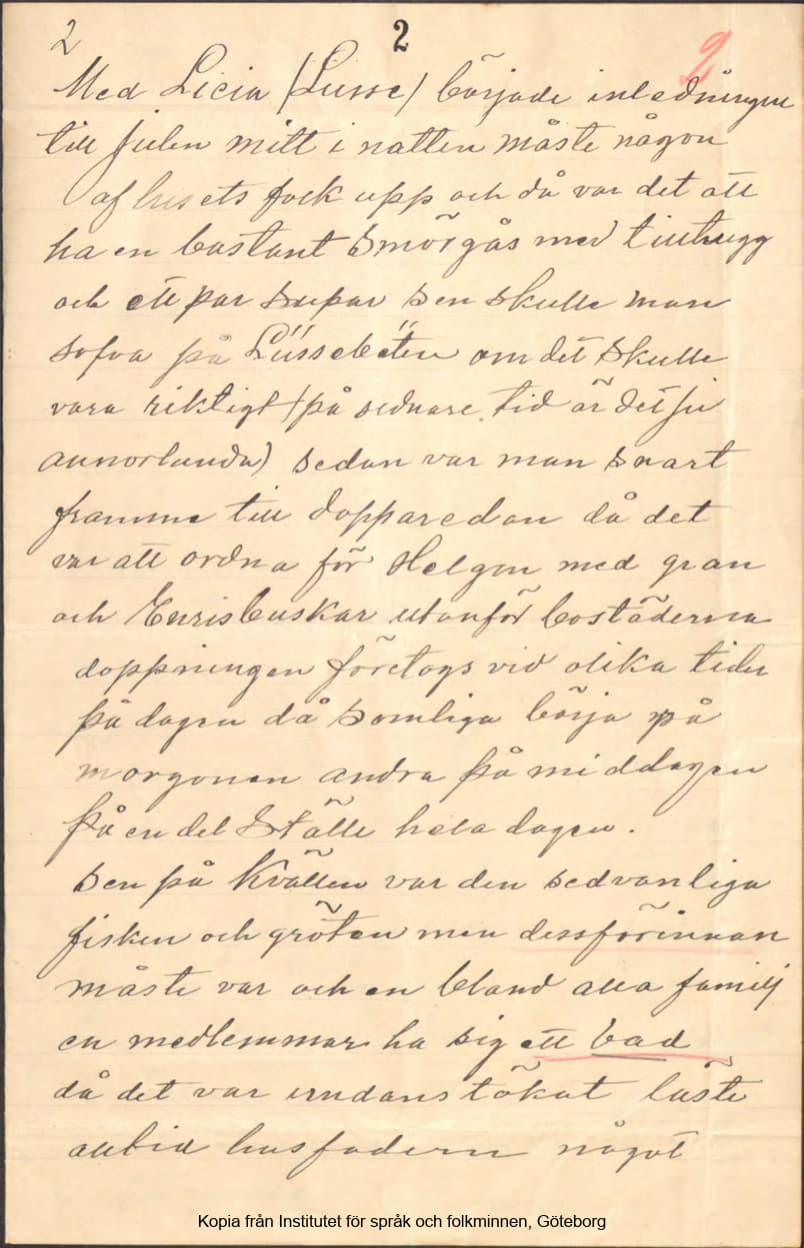 2 2 2
Med Licia (Lusse) började inledningen
till julen mitt i natten måste någon
af husets folk upp och då var det att
ha en bastant smörgås med tilltugg
och ett par supar sen skulle man
sofva på Lüssebëten om det skulle
vara riktigt (på sednare tid är det ju
annorlunda) sedan var man snart
framme till dopparedan då det
var att ordna för Helgen med gran
och Enrisbuskar utanför bostäderna
doppningen företogs vid olika tider
på dagen då somliga börja på
morgonen andra på middagen
på en del Ställe hela dagen.
sen på Kvällen var den sedvanliga
fisken och gröten men dessförinnan
måste var och en bland alla familj
en medlemmar ha sig ett bad
då det var undanstökat läste
alltid husfadern något
Kopia från Institutet för språk och folkminnen, Göteborg